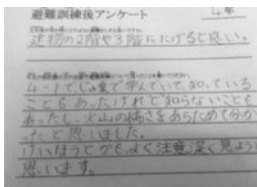 避難訓練後アンケート 4年
建物の2階や3階ににげると良い。
4-1でじゅ業で学んでいて、知っている
こともあったけれど知らないことも
あったし、火山の怖さをあらためて分か
ったと思いました。
けいほうとかも、よく注意深く見ようと
思います。